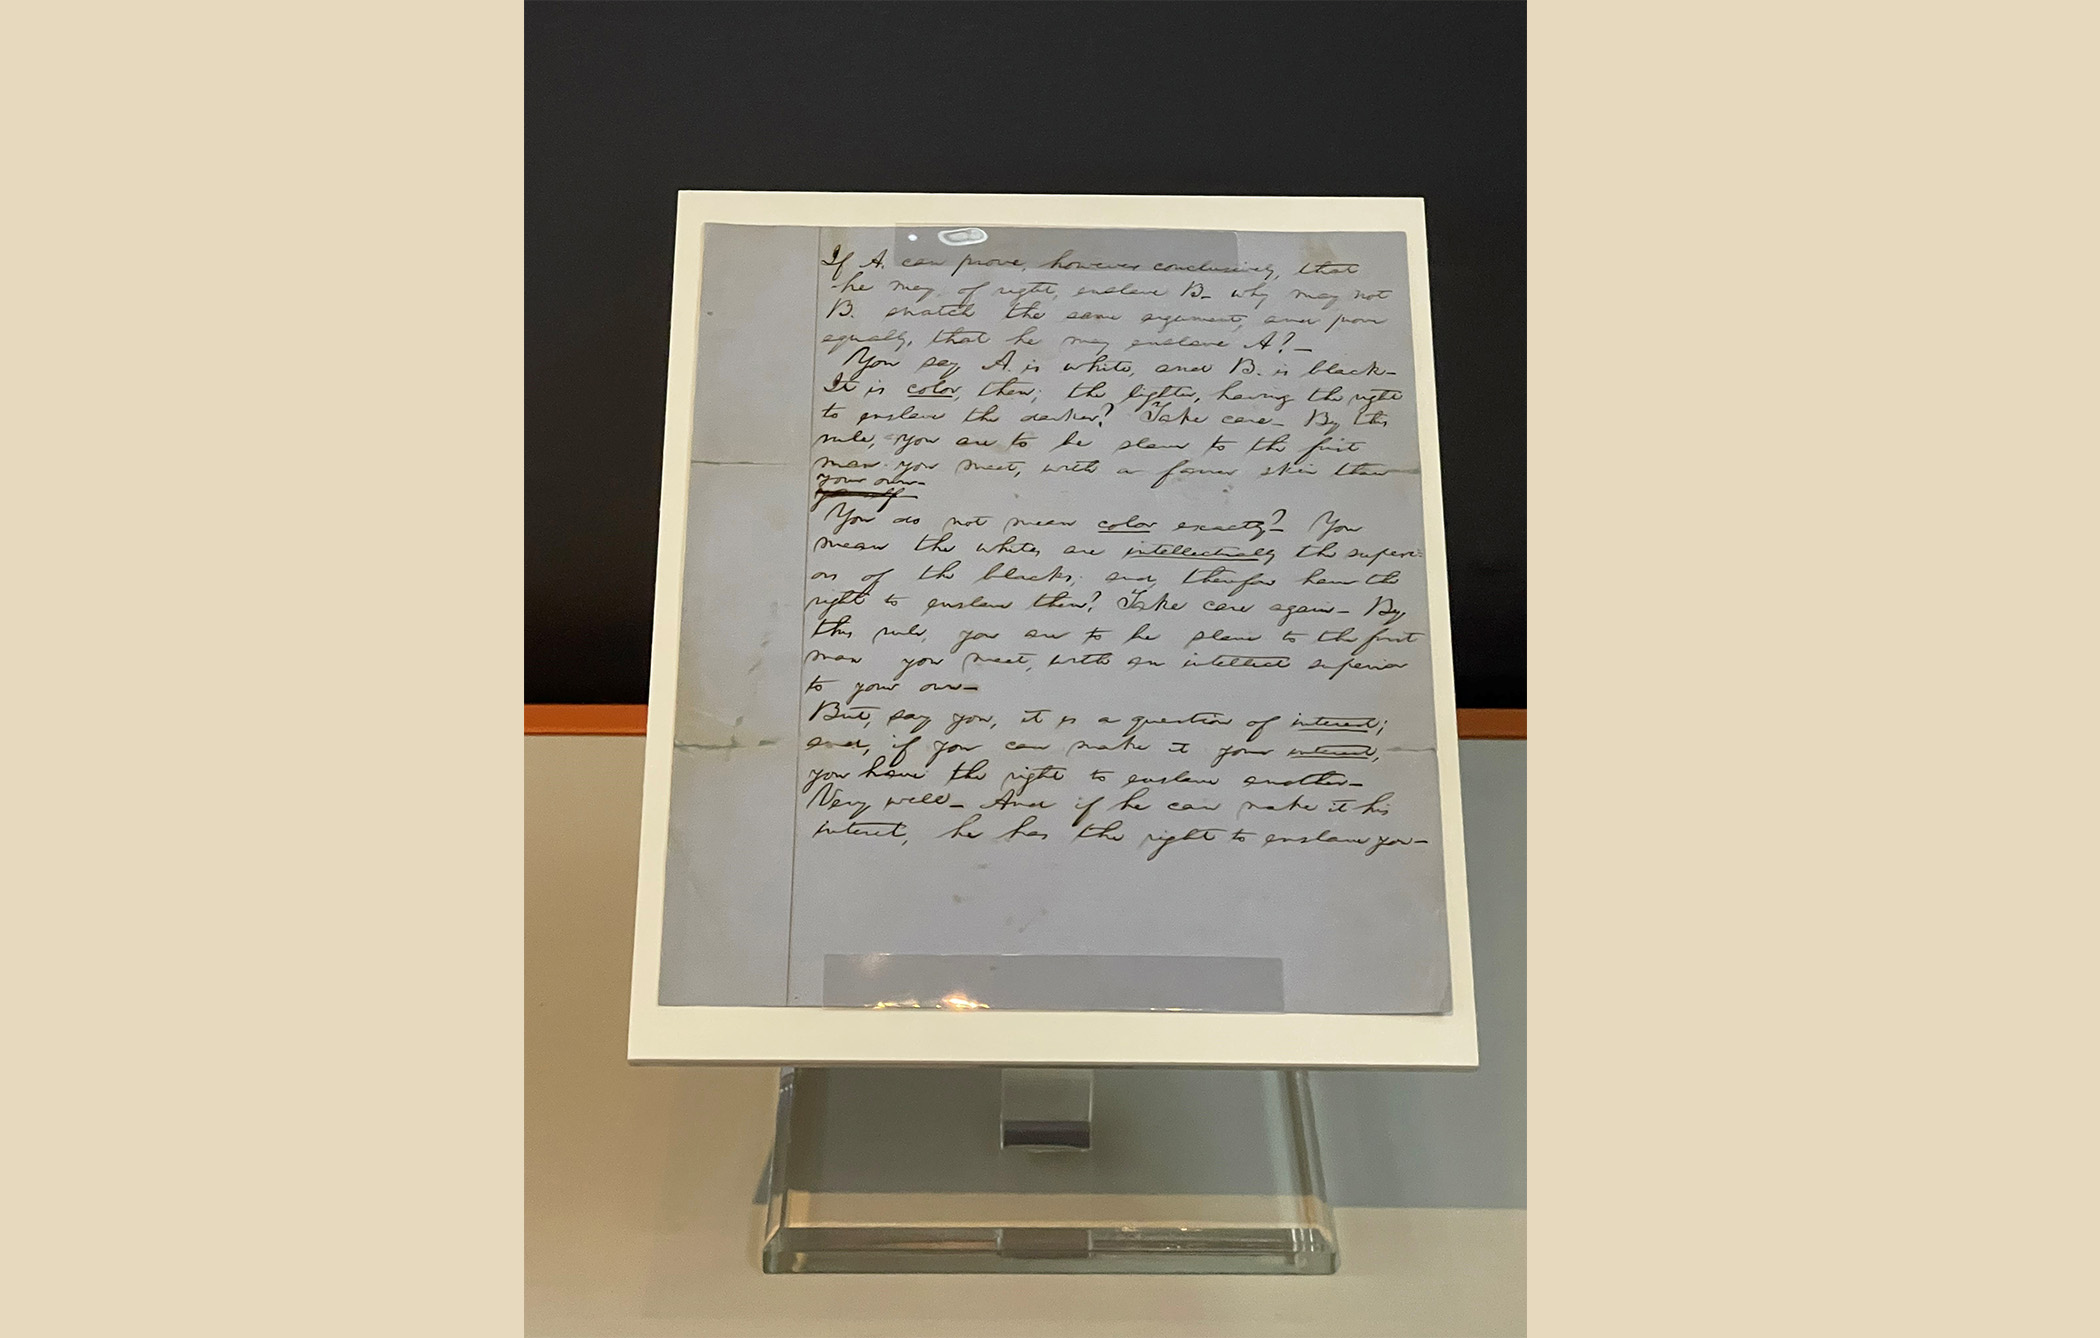 If A. can prove, however conclusively, that
he may, of right, enslave B.— why may not
B. snatch the same argument, and prove
equally, that he may enslave A?—
You say A. is white, and B. is black—
It is color, then; the lighter, having the right
to enslave the darker? Take care— By this
rule, you are to be slave to the first
man you meet, with a fairer skin than
your own—
You do not mean color exactly?— You
mean the whites are intellectually the superi-
ors of the blacks; and, therefore have the
right to enslave them? Take care again— By
this rule, you are to be slave to the first
man you meet, with an intellect superior
to your own—
But, say you, it is a question of interest;
and, if you can make it your interest,
you have the right to enslave another—
Very well— And if he can make it his
interest, he has the right to enslave you—